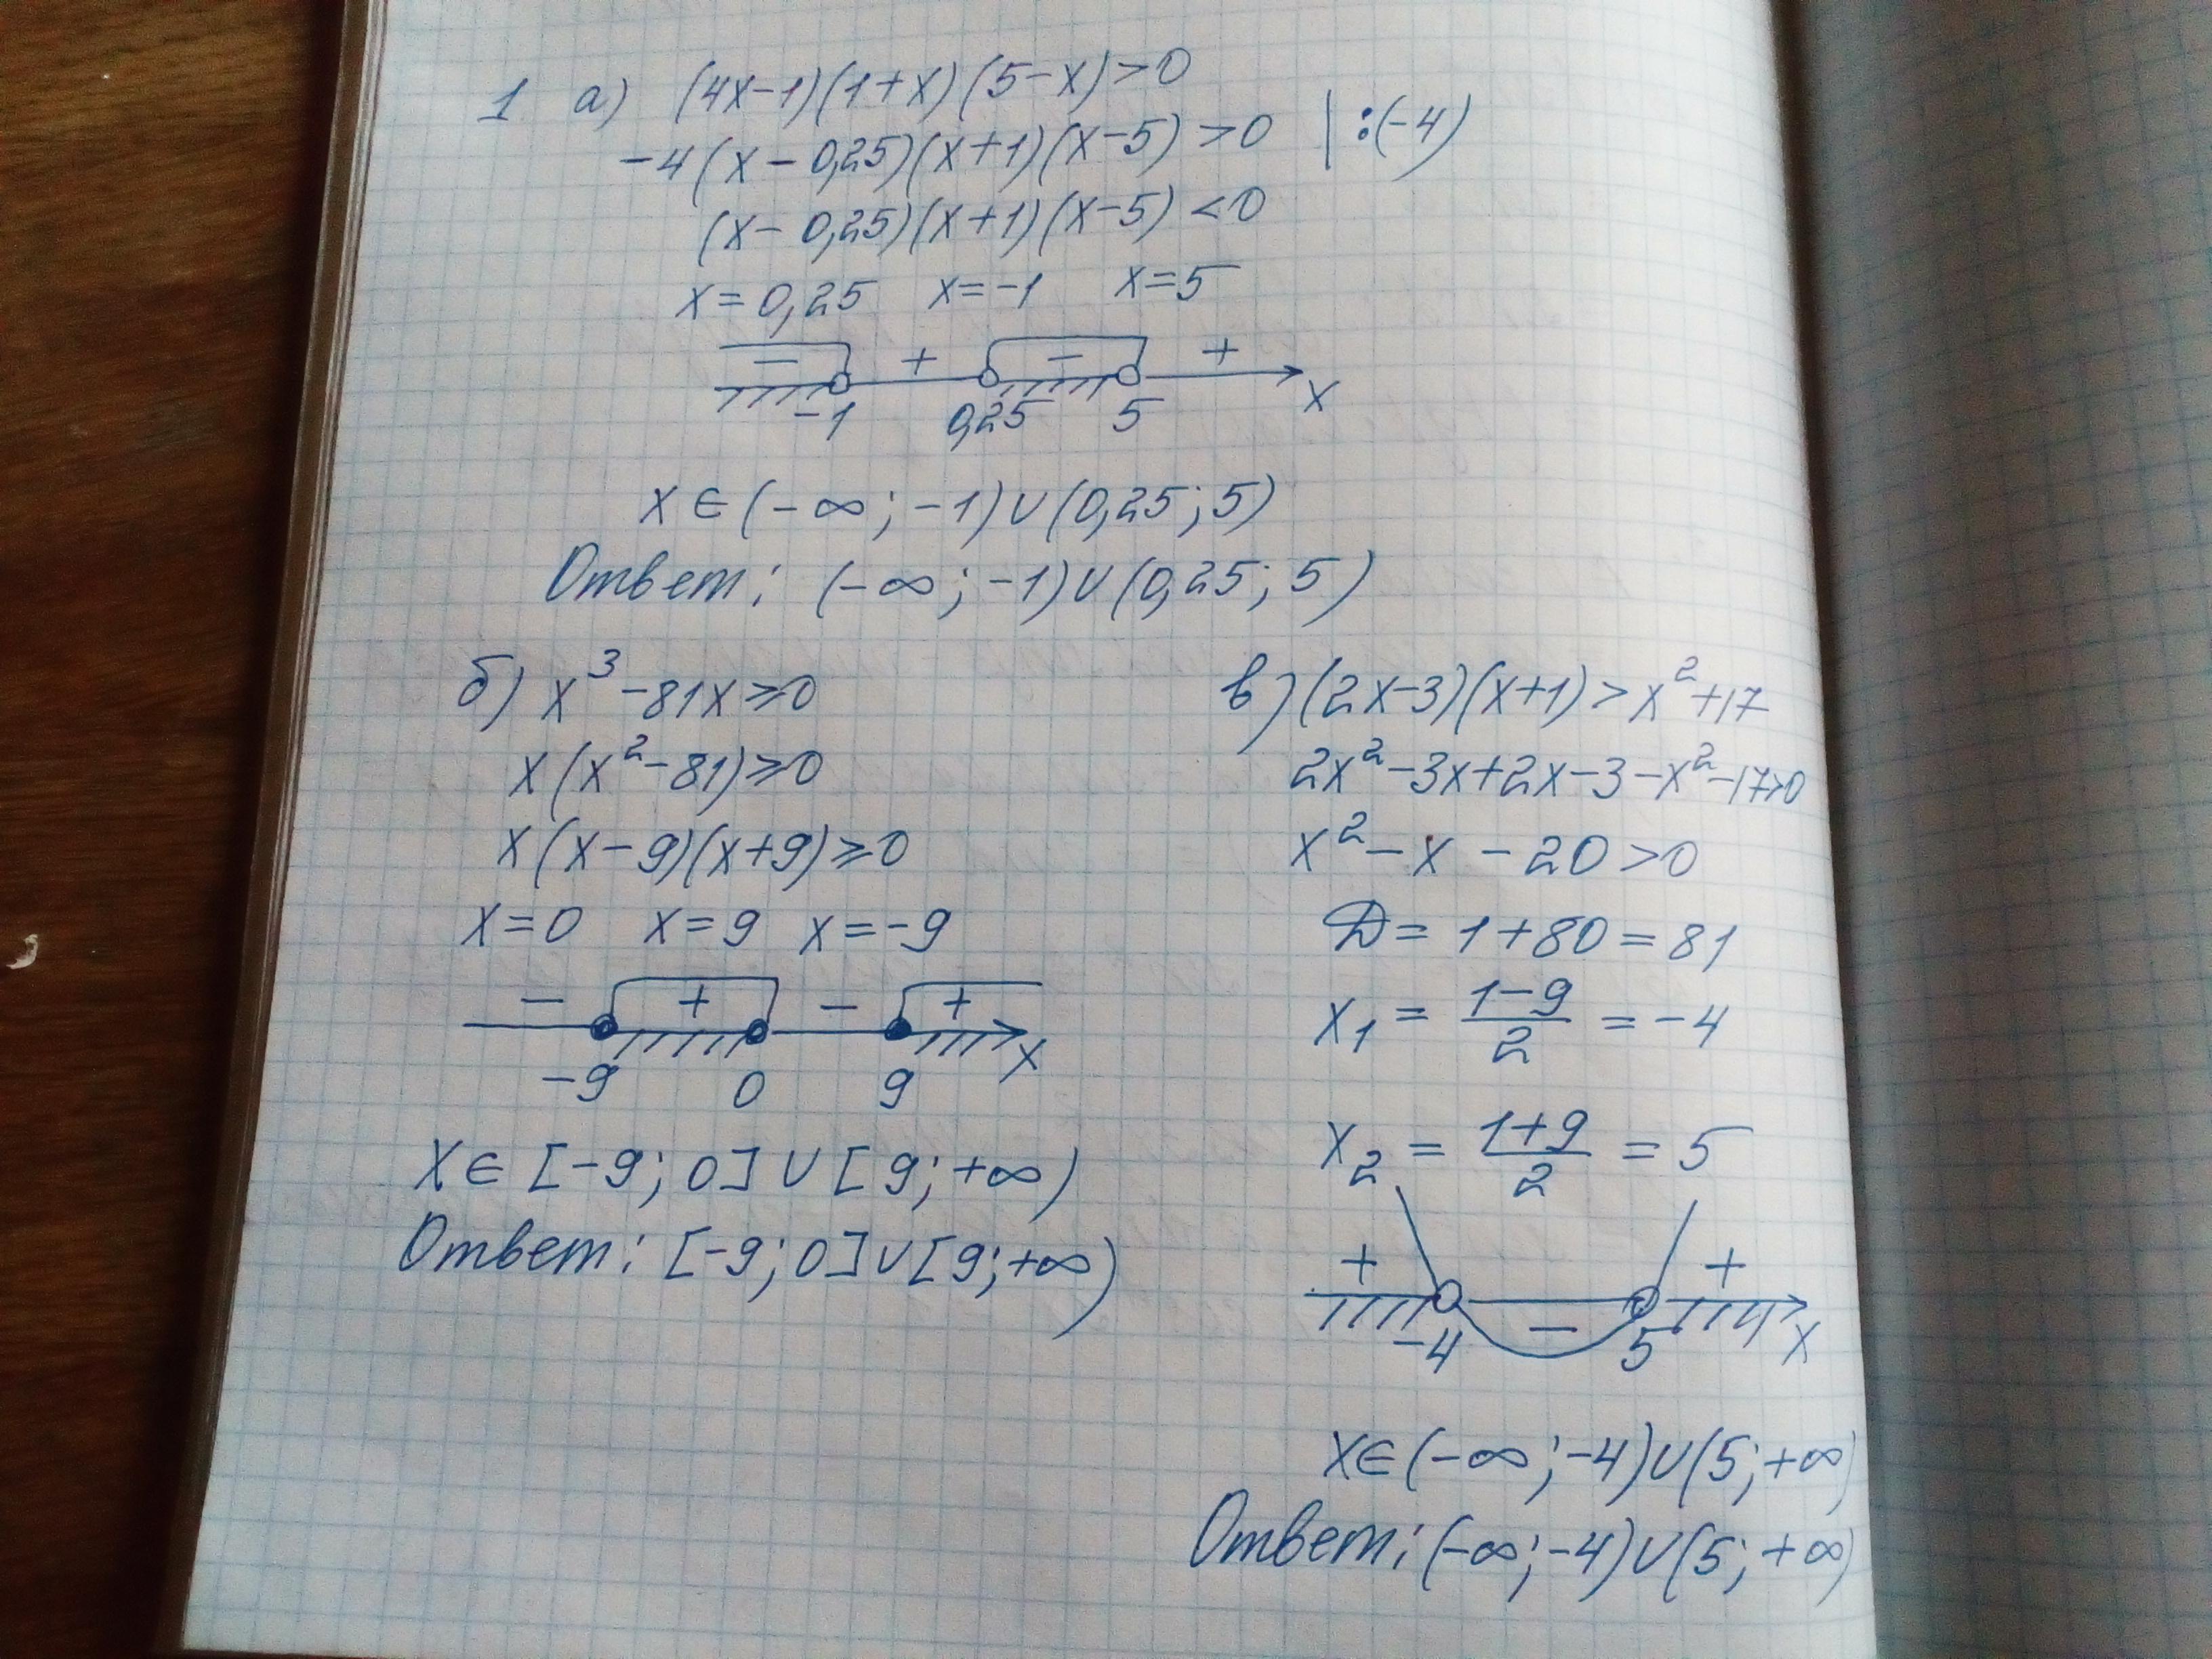 1 а) (4x-1)(1+x)(5-x)>0
-4(x-0,25)(x+1)(x-5)>0 | :(-4)
(x-0,25)(x+1)(x-5)<0
x=0,25 x=-1 x=5
- + - +
-1 0,25 5 x
x∈(-∞;-1)∪(0,25;5)
Ответ: (-∞;-1)∪(0,25;5)
б) x³-81x≥0
x(x²-81)≥0
x(x-9)(x+9)≥0
x=0 x=9 x=-9
- + - +
-9 0 9 x
x∈[-9;0]∪[9;+∞)
Ответ: [-9;0]∪[9;+∞)
в) (2x-3)(x+1)>x²+17
2x²-3x+2x-3-x²-17>0
x²-x-20>0
D=1+80=81
x₁=(1-9)/2=-4
x₂=(1+9)/2=5
+ - +
-4 5 x
x∈(-∞;-4)∪(5;+∞)
Ответ: (-∞;-4)∪(5;+∞)